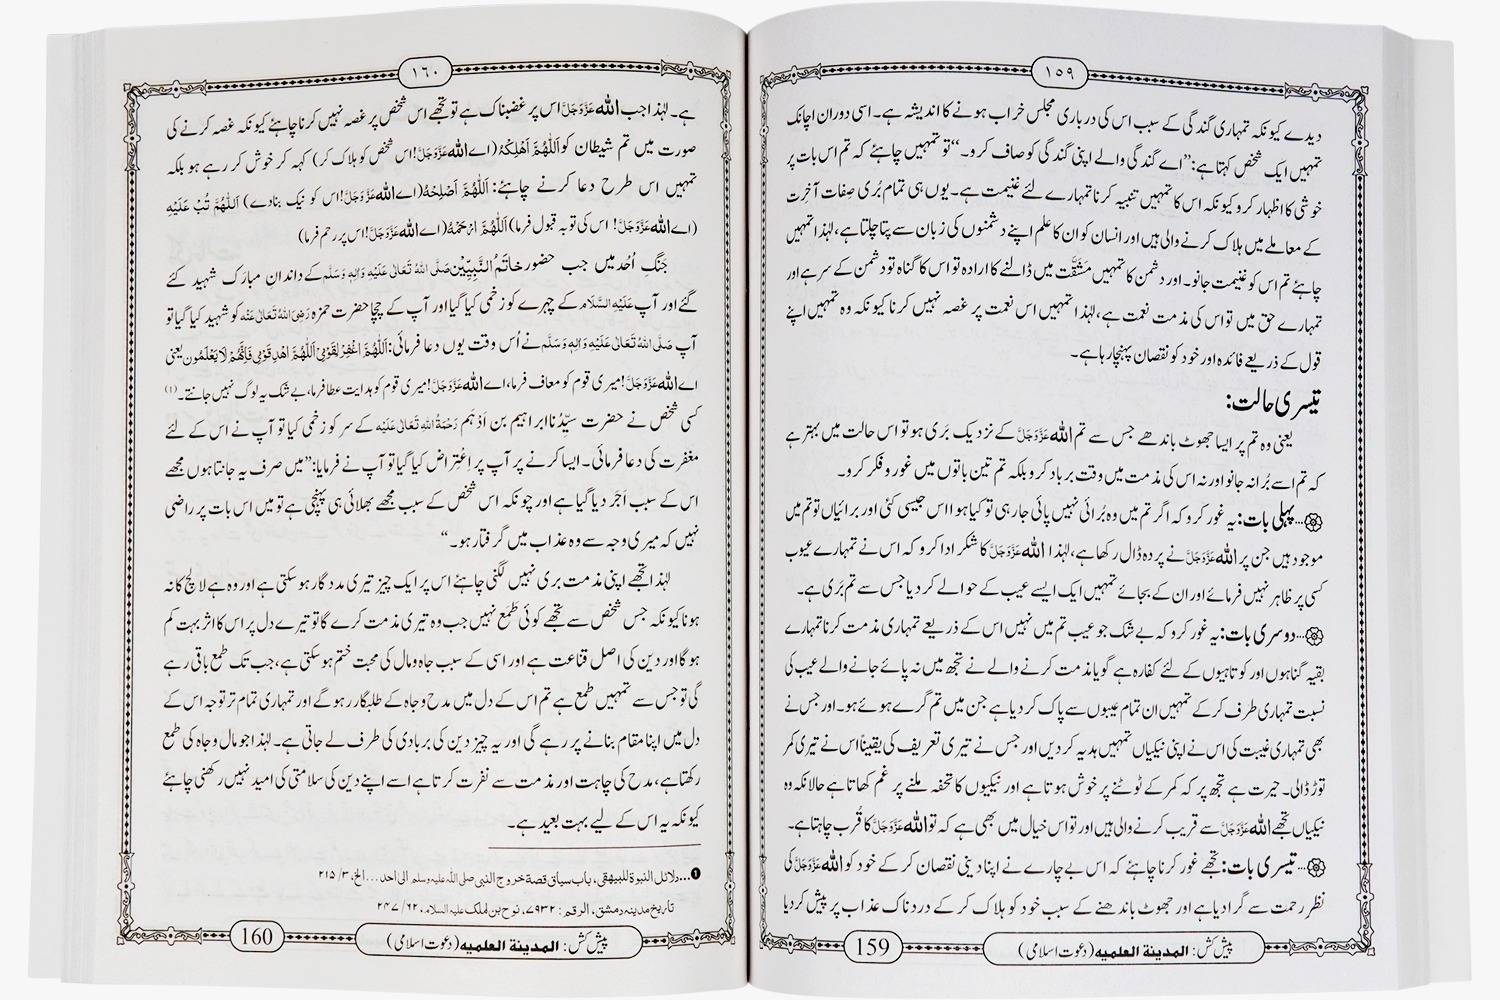 ۱۵۹
دیدے کیونکہ تمہاری گندگی کے سبب اس کی درباری مجلس خراب ہونے کا اندیشہ ہے۔ اسی دوران اچانک
تمہیں ایک شخص کہتا ہے: ”اے گندگی والے اپنی گندگی کو صاف کرو۔“ تو تمہیں چاہئے کہ تم اس بات پر
خوشی کا اظہار کرو کیونکہ اس کا تمہیں تنبیہ کرنا تمہارے لئے غنیمت ہے۔ یوں ہی تمام بُری صفات آخِرت
کے معاملے میں ہلاک کرنے والی ہیں اور انسان کو ان کا علم اپنے دشمنوں کی زبان سے پتا چلتا ہے، لہٰذا تمہیں
چاہئے تم اس کو غنیمت جانو۔ اور دشمن کا تمہیں مَشَقَّت میں ڈالنے کا ارادہ تو اس کا گناہ تو دشمن کے سر ہے اور
تمہارے حق میں تو اس کی مذمت نعمت ہے، لہٰذا تمہیں اس نعمت پر غصہ نہیں کرنا کیونکہ وہ تمہیں اپنے
قول کے ذریعے فائدہ اور خود کو نقصان پہنچا رہا ہے۔
تیسری حالت:
یعنی وہ تم پر ایسا جھوٹ باندھے جس سے تم اللہ عَزَّوَجَلَّ کے نزدیک بَری ہو تو اس حالت میں بہتر ہے
کہ تم اسے بُرا نہ جانو اور نہ اس کی مذمت میں وقت برباد کرو بلکہ تم تین باتوں میں غور و فکر کرو۔
...پہلی بات: یہ غور کرو کہ اگر تم میں وہ بُرائی نہیں پائی جا رہی تو کیا ہوا اس جیسی کئی اور برائیاں تو تم میں
موجود ہیں جن پر اللہ عَزَّوَجَلَّ نے پردہ ڈال رکھا ہے، لہٰذا اللہ عَزَّوَجَلَّ کا شکر ادا کرو کہ اس نے تمہارے عیوب
کسی پر ظاہر نہیں فرمائے اور ان کے بجائے تمہیں ایک ایسے عیب کے حوالے کر دیا جس سے تم بَری ہے۔
...دوسری بات: یہ غور کرو کہ بے شک جو عیب تم میں نہیں اس کے ذریعے تمہاری مذمت کرنا تمہارے
بقیہ گناہوں اور کوتاہیوں کے لئے کفارہ ہے گویا مذمت کرنے والے نے تجھ میں نہ پائے جانے والے عیب کی
نسبت تمہاری طرف کر کے تمہیں ان تمام عیبوں سے پاک کر دیا ہے جن میں تم گرے ہوئے ہو۔ اور جس نے
بھی تمہاری غیبت کی اس نے اپنی نیکیاں تمہیں ہدیہ کر دیں اور جس نے تیری تعریف کی یقیناً اس نے تیری کمر
توڑ ڈالی۔ حیرت ہے تجھ پر کہ کمر کے ٹوٹنے پر خوش ہوتا ہے اور نیکیوں کا تحفہ ملنے پر غم کھاتا ہے حالانکہ وہ
نیکیاں تجھے اللہ عَزَّوَجَلَّ سے قریب کرنے والی ہیں اور تو اس خیال میں بھی ہے کہ تو اللہ عَزَّوَجَلَّ کا قُرب چاہتا ہے۔
...تیسری بات: تجھے غور کرنا چاہئے کہ اس بے چارے نے اپنا دینی نقصان کر کے خود کو اللہ عَزَّوَجَلَّ کی
نظرِ رحمت سے گرا دیا ہے اور جھوٹ باندھنے کے سبب خود کو ہلاک کر کے دردناک عذاب پر پیش کر دیا
پیش کش: المدینۃ العلمیہ (دعوت اسلامی)
159
۱۶۰
ہے۔ لہٰذا جب اللہ عَزَّوَجَلَّ اس پر غضبناک ہے تو تجھے اس شخص پر غصہ نہیں کرنا چاہئے کیونکہ غصہ کرنے کی
صورت میں تم شیطان کو اَللّٰهُمَّ اَهْلِکْهُ (اے اللہ عَزَّوَجَلَّ! اس شخص کو ہلاک کر) کہہ کر خوش کر رہے ہو بلکہ
تمہیں اس طرح دعا کرنے چاہئے: اَللّٰهُمَّ اَصْلِحْهُ (اے اللہ عَزَّوَجَلَّ! اس کو نیک بنا دے) اَللّٰهُمَّ تُبْ عَلَيْهِ
(اے اللہ عَزَّوَجَلَّ! اس کی توبہ قبول فرما) اَللّٰهُمَّ ارْحَمْهُ (اے اللہ عَزَّوَجَلَّ! اس پر رحم فرما)
جنگِ اُحُد میں جب حضور خَاتَمُ النَّبِیِّیْن صَلَّی اللہُ تَعَالٰی عَلَیْهِ وَاٰلِهٖ وَسَلَّم کے دندانِ مبارَک شہید کئے
گئے اور آپ عَلَیْهِ السَّلَام کے چہرے کو زخمی کیا گیا اور آپ کے چچا حضرت حمزہ رَضِیَ اللہُ تَعَالٰی عَنْه کو شہید کیا گیا تو
آپ صَلَّی اللہُ تَعَالٰی عَلَیْهِ وَاٰلِهٖ وَسَلَّم نے اُس وقت یوں دعا فرمائی: اَللّٰهُمَّ اغْفِرْ لِقَوْمِیْ اَللّٰهُمَّ اهْدِ قَوْمِیْ فَاِنَّهُمْ لَا یَعْلَمُوْن یعنی
اے اللہ عَزَّوَجَلَّ! میری قوم کو معاف فرما، اے اللہ عَزَّوَجَلَّ! میری قوم کو ہدایت عطا فرما، بے شک یہ لوگ نہیں جانتے۔ (۱)
کسی شخص نے حضرت سیِّدُنا ابراہیم بن اَدْہَم رَحْمَةُ اللہِ تَعَالٰی عَلَیْه کے سر کو زخمی کیا تو آپ نے اس کے لئے
مغفرت کی دعا فرمائی۔ ایسا کرنے پر آپ پر اِعْتِراض کیا گیا تو آپ نے فرمایا: ”میں صرف یہ جانتا ہوں مجھے
اس کے سبب اَجَر دیا گیا ہے اور چونکہ اس شخص کے سبب مجھے بھلائی ہی پہنچی ہے تو میں اس بات پر راضی
نہیں کہ میری وجہ سے وہ عذاب میں گرفتار ہو۔“
لہٰذا تجھے اپنی مذمت بری نہیں لگنی چاہئے اس پر ایک چیز تیری مددگار ہو سکتی ہے اور وہ ہے لالچ کا نہ
ہونا کیونکہ جس شخص سے تجھے کوئی طَمَع نہیں جب وہ تیری مذمت کرے گا تو تیرے دل پر اس کا اثر بہت کم
ہو گا اور دین کی اصل قناعت ہے اور اسی کے سبب جاہ و مال کی محبت ختم ہو سکتی ہے، جب تک طمع باقی رہے
گی تو جس سے تمہیں طمع ہے تم اس کے دل میں مدح و جاہ کے طلبگار رہو گے اور تمہاری تمام تر توجہ اس کے
دل میں اپنا مقام بنانے پر رہے گی اور یہ چیز دین کی بربادی کی طرف لے جاتی ہے۔ لہٰذا جو مال و جاہ کی طمع
رکھتا ہے، مدح کی چاہت اور مذمت سے نفرت کرتا ہے اسے اپنے دین کی سلامتی کی امید نہیں رکھنی چاہئے
کیونکہ یہ اس کے لیے بہت بعید ہے۔
❶...دلائل النبوة للبیهقی، باب سیاق قصة خروج النبی صلی اللہ علیہ وسلم الی احد...الخ، ۳/ ۲۱۵
تاریخ مدینه دمشق، الرقم: ۷۹۳۲، نوح بن لمك علیہ السلام، ۶۲/ ۲۴۷
پیش کش: المدینۃ العلمیہ (دعوت اسلامی)
160